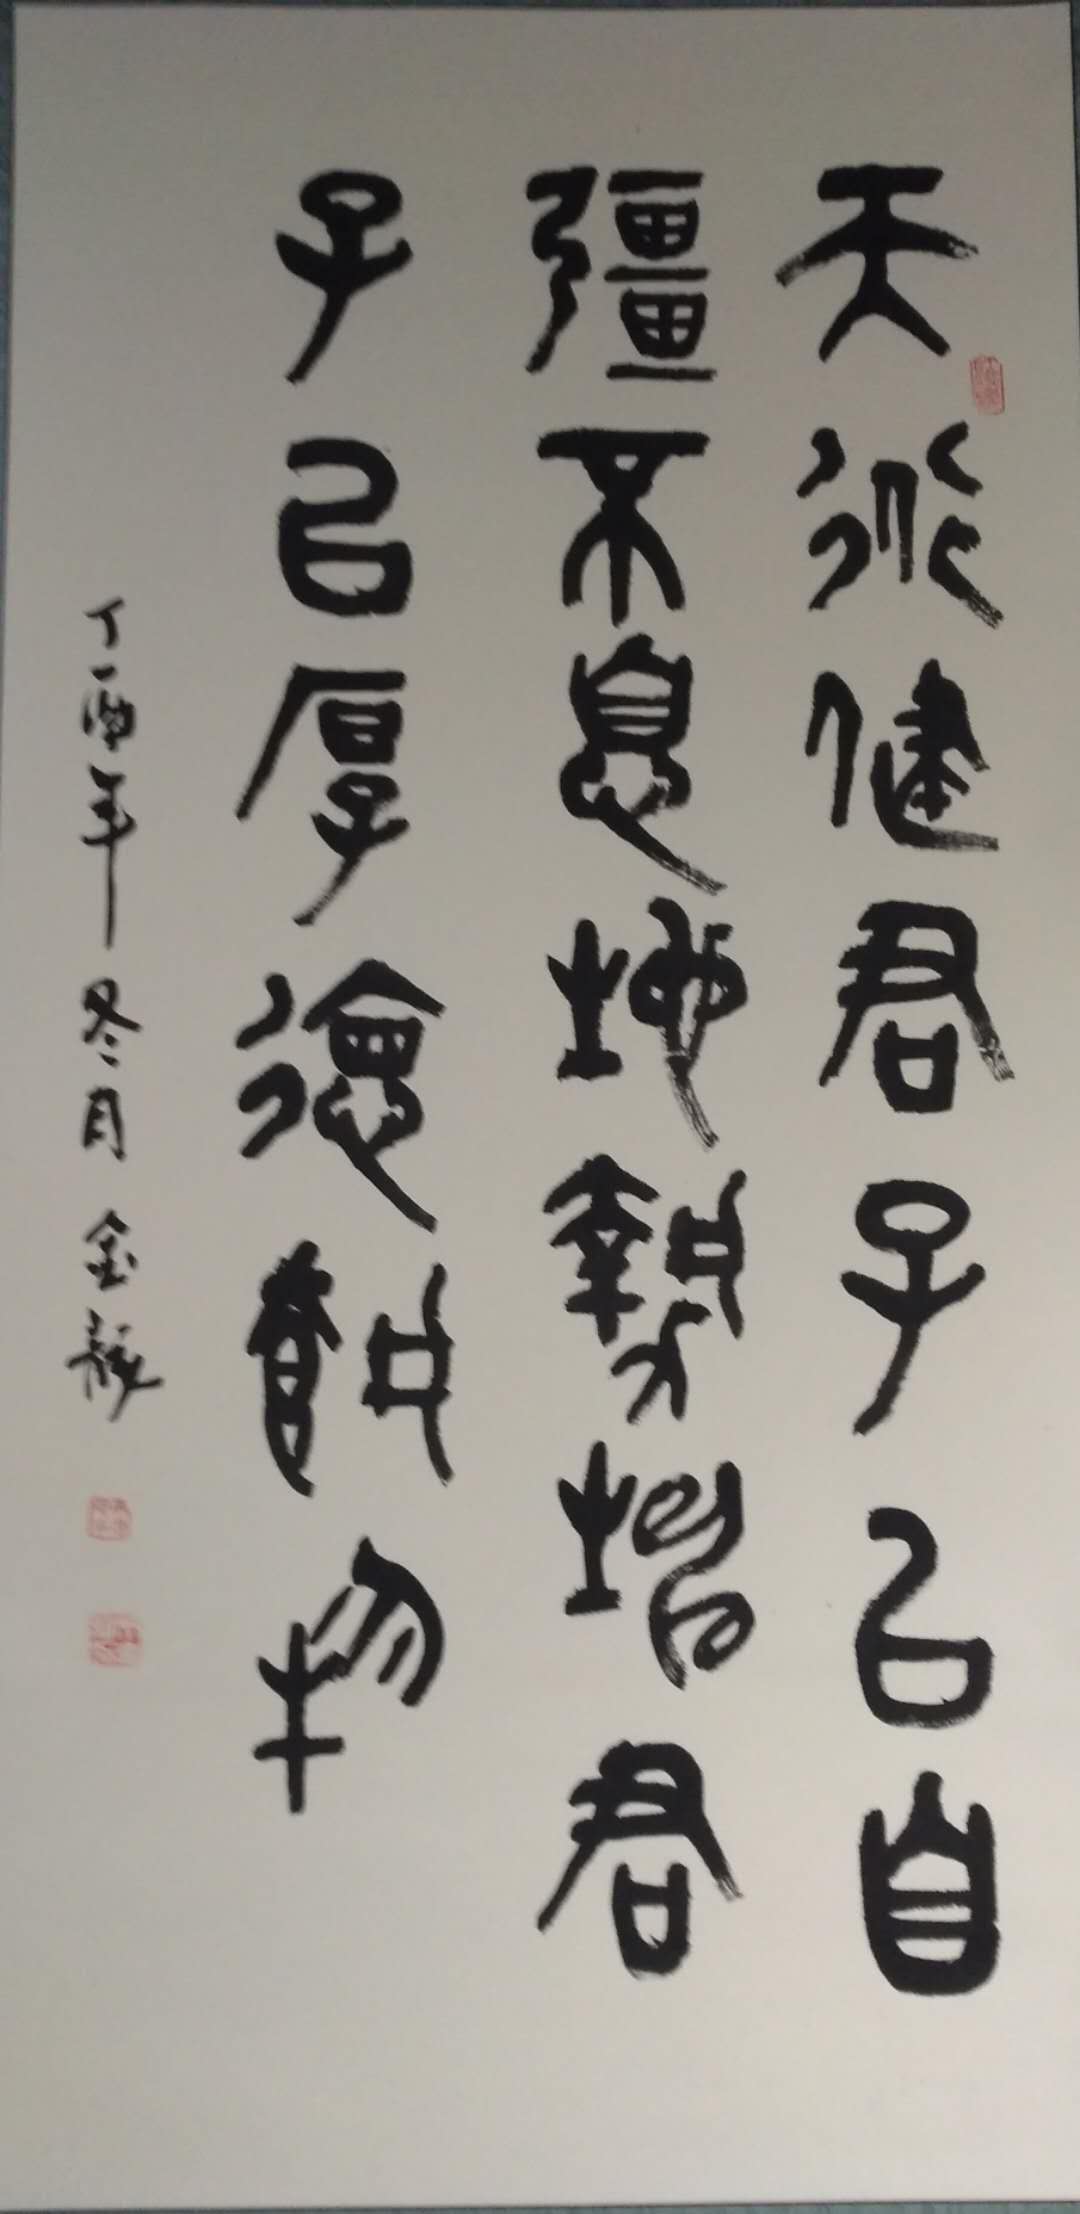 天行健君子以自
彊不息地勢坤君
子以厚德載物
丁酉年冬月 金